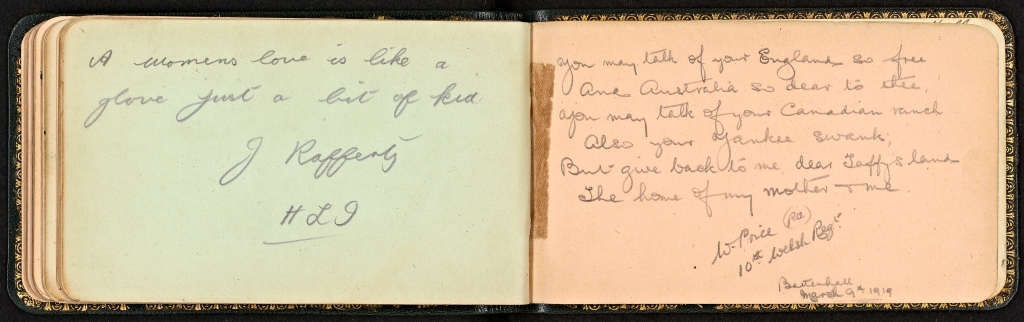 A womens love is like a
glove just a bit of kid
J Rafferty
HLI
you may talk of your England so free
And Australia so dear to thee,
you may talk of your Canadian ranch
Also your Yankee swank;
But give back to me dear Taffy's land
The home of my mother & me.
W. Price (Pte)
10th Welsh Regt
Battenhall
March 9th 1919